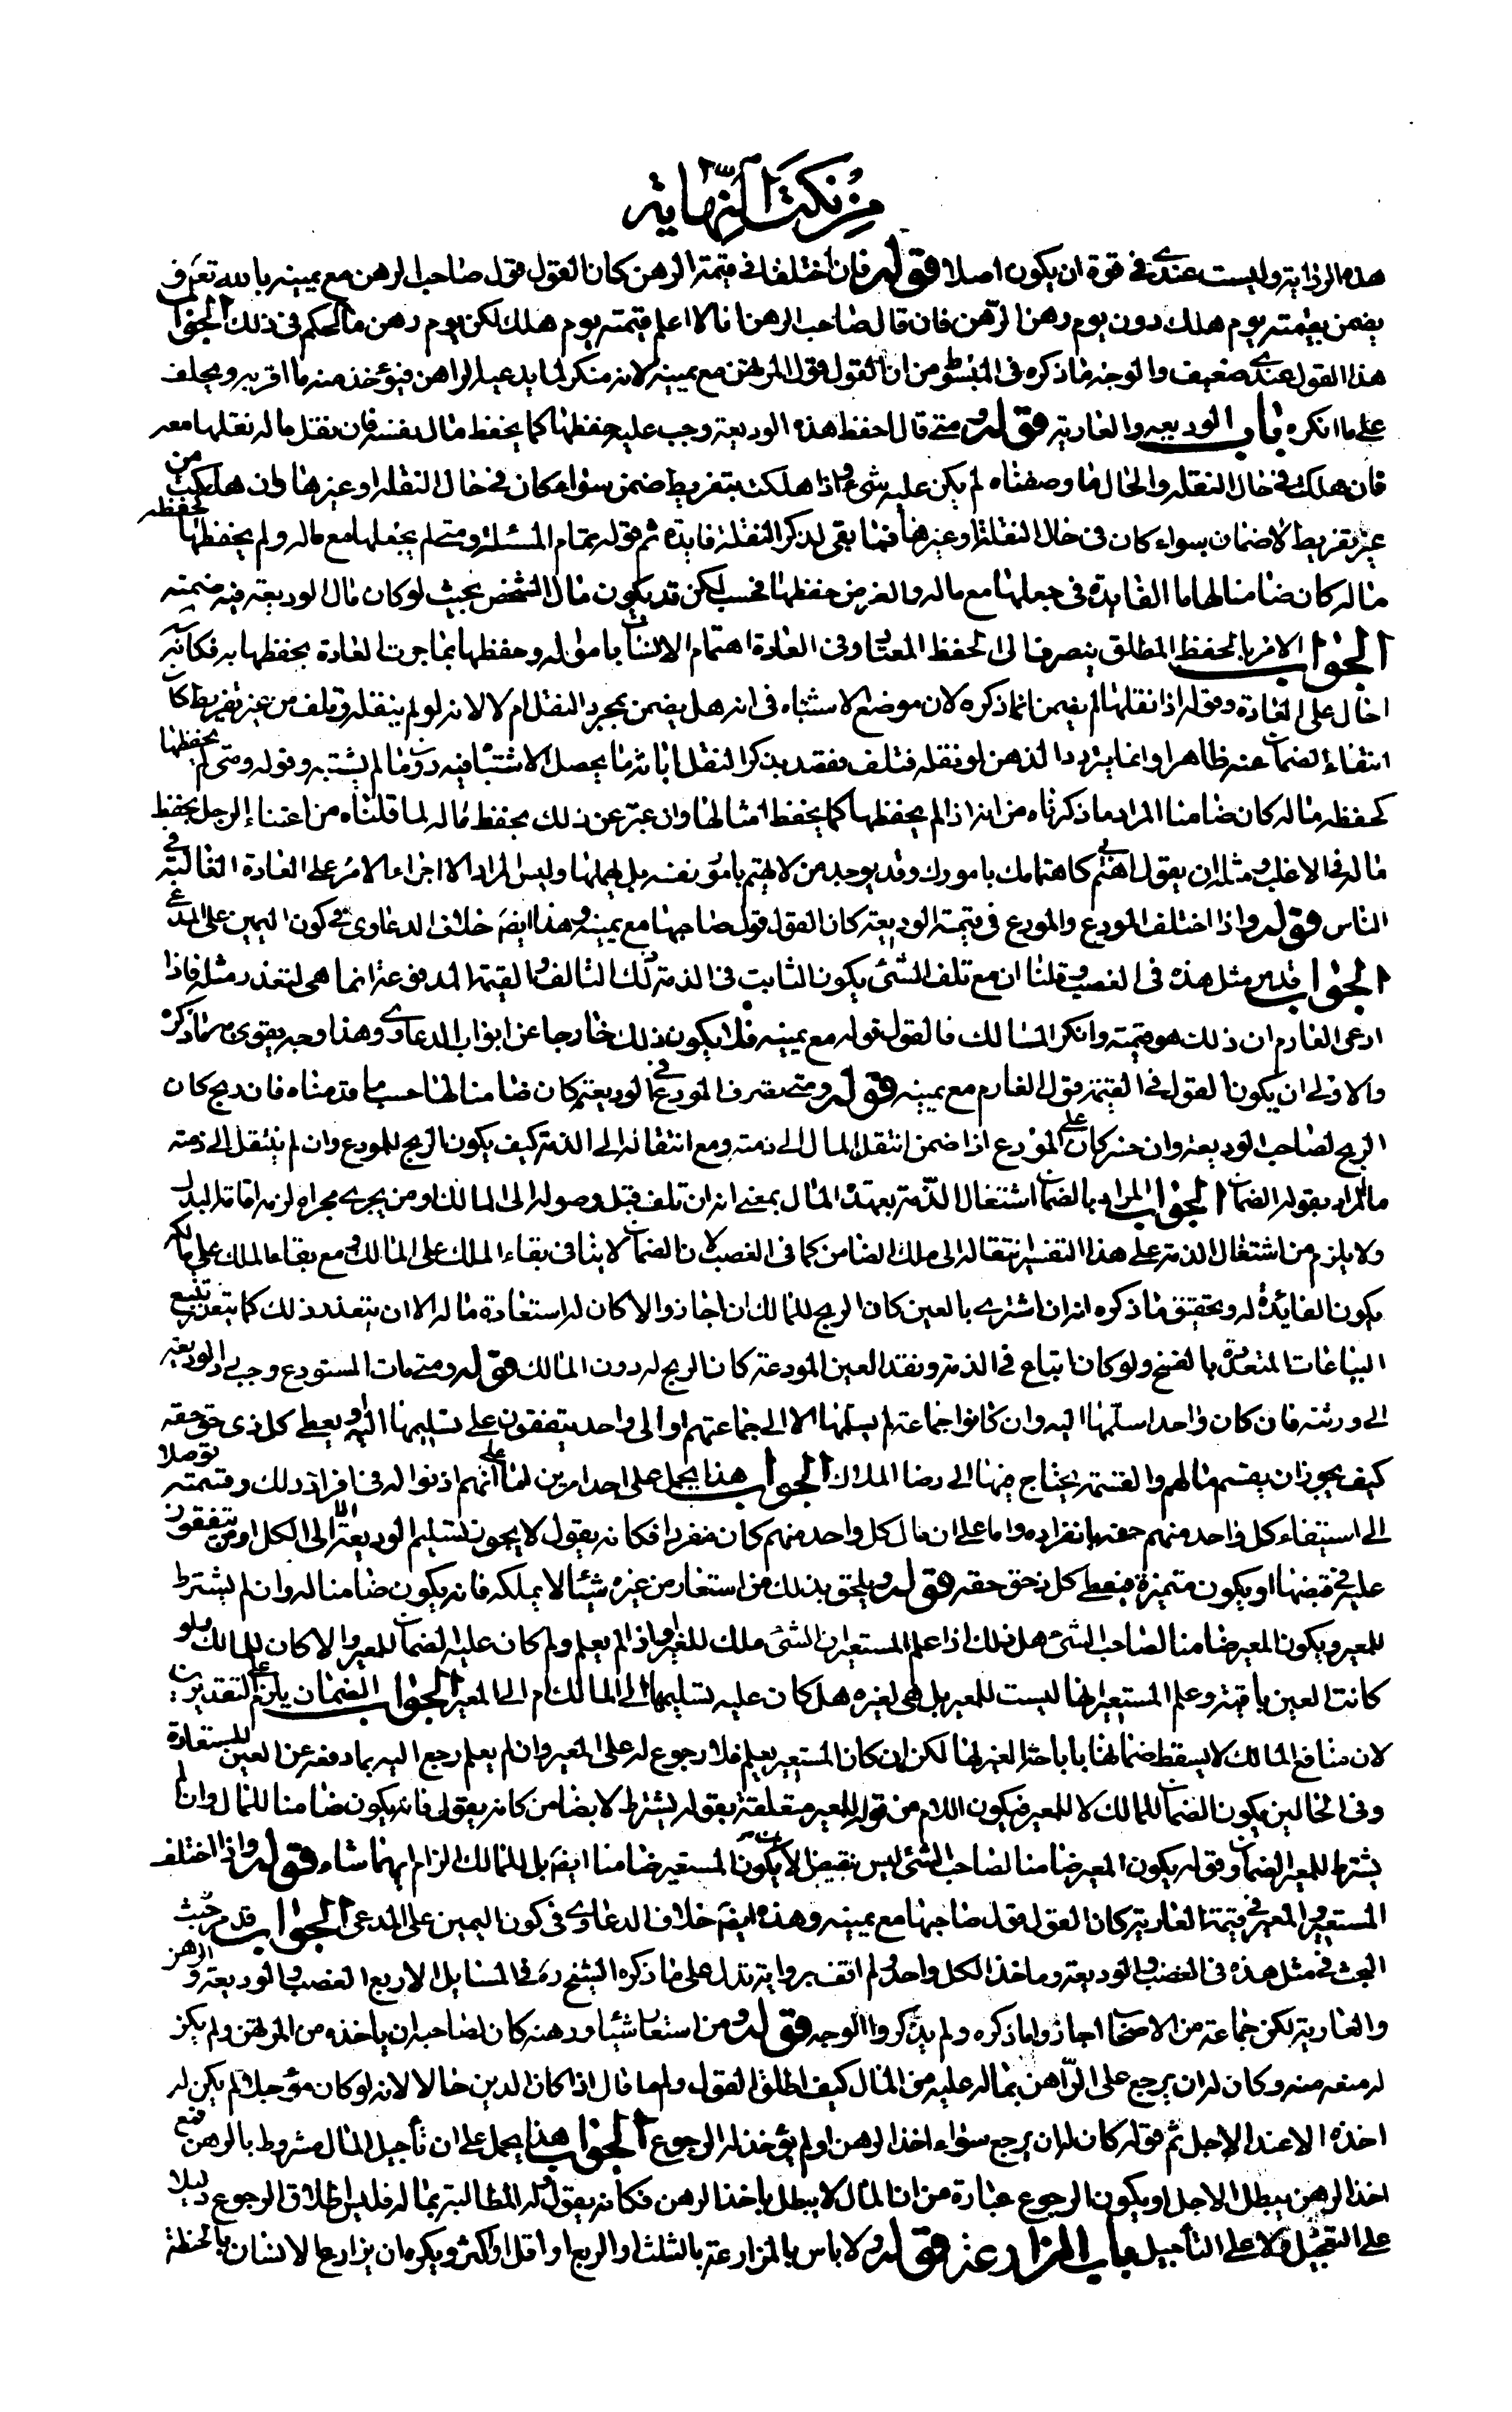 من نكت النهاية
هذه الرواية وليست عندي في قوة ان يكون اصلا قوله فان اختلفا في قيمة الرهن كان القول قول صاحب الرهن مع يمينه بالله تعم في
يضمن بقيمته يوم هلك دون يوم رهن الرهن فان قال صاحب الرهن انا لا اعلم قيمته يوم هلك لكن يوم رهن ما الحكم في ذلك الجواب
هذا القول عندي ضعيف والوجه ما ذكره في المبسوط من ان القول قول المرتهن مع يمينه لانه منكر لما يدعيه الراهن فيؤخذ منه ما اقر به ويحلف
على ما انكره باب الوديعه والعارية قوله متى قال احفظ هذه الوديعة وجب عليه حفظها كما يحفظ مال نفسه فان نقل ماله نقلها معه
فان هلكت في حال النقلة والحال ما وصفناه لم يكن عليه شيء واذا هلكت بتفريط ضمن سواء كان في حال النقلة او غيرها وان هلكت من
غير تفريط لا ضمان سواء كان في حال النقلة او غيرها فما بقي لذكر النقلة فايدة ثم قوله بتمام المسئلة ومتى لم يجعلها مع ماله ولم يحفظها كحفظه
ماله كان ضامنا لها ما الفايدة في جعلها مع ماله والغرض حفظها فحسب لكن قد يكون مال الشخص بحيث لو كان مال الوديعة فيه ضيعته
الجواب الامر بالحفظ المطلق ينصرف الى الحفظ المعتاد وفي العادة اهتمام الانسان باموله وحفظها بما جرت العادة بحفظها به فكانه
احال على العادة وقوله اذا نقلها لم يضمن انما ذكره لان موضع الاشتباه في انه هل يضمن بمجرد النقل ام لا لانه لو لم ينقله وتلف من غير تفريط كان
انتفاء الضمان عنه ظاهرا وانما يتردد الذهن لو نقله فتلف فقصد بذكر النقل ابانة ما يحصل الاشتباه فيه دون ما لم يشتبه وقوله ومتى لم يحفظها
كحفظه ماله كان ضامنا المراد ما ذكرناه من انه اذا لم يحفظها كما يحفظ امثالها وان عبر عن ذلك بحفظ ماله لما قلناه من اعتناء الرجل بحفظ
ماله في الاغلب ومثله ان يقول اهتم بي كاهتمامك بامورك وقد يوجد من لا يهتم بامور نفسه بل يهملها وليس المراد الا اجراء الامر على العادة الغالبة في
الناس قوله واذا اختلف المودع والمودع في قيمة الوديعة كان القول قول صاحبها مع يمينه وهذا ايضم خلاف الدعاوي في كون اليمين على المدعي
الجواب قد مر مثل هذه في الغصب وقلنا ان مع تلف الشيء يكون الثابت في الذمة ذلك التالف والقيمة المدفوعة انما هي لتعذر مثله فاذا
ادعى الغارم ان ذلك هو قيمته وانكر المالك فالقول قوله مع يمينه فلا يكون ذلك خارجا عن ابواب الدعاوي وهذا وجه يقوى به ما ذكره
والاولى ان يكون القول في القيمة قول الغارم مع يمينه قوله ومتى تصرف المودع في الوديعة كان ضامنا لها حسب ما قدمناه فان ربح كان
الربح لصاحب الوديعة وان خسر كان على المودع اذا ضمن انتقل المال الى ذمته ومع انتقاله الى الذمة كيف يكون الربح للمودع وان لم ينتقل الى ذمته
ما المراد بقوله الضمان الجواب المراد بالضمان اشتغال الذمة بعهدة المال بمعنى انه ان تلف قبل وصوله الى المالك او من يجري مجراه لزمه اقامة البدل
ولا يلزم من اشتغال الذمة على هذا التفسير انتقاله الى ملك الضامن كما في الغصب لان الضمان لا ينافي بقاء الملك على المالك ومع بقاء الملك على مالكه
يكون الفائدة له وتحقيق ما ذكره انه ان اشترى بالعين كان الربح للمالك ان اجاز والا كان له استعادة ماله الا ان يتعذر ذلك كما يتعذر تتبع
البياعات المتعددة بالفسخ ولو كان ابتاع في الذمة ونقد العين المودعة كان الربح له دون المالك قوله ومتى مات المستودع وجب رد الوديعة
الى ورثته فان كان واحدا سلمها اليه وان كانوا جماعة لم يسلمها الا الى جماعتهم او الى واحد يتفقون على تسليمها اليه او يعطي كل ذي حق حقه
كيف يجوز ان يقسم مالهم والقسمة يحتاج فيها الى رضا الملاك الجواب هذا يحمل على احد امرين اما على انهم اذنوا له في افراز ذلك وقسمته توصلا
الى استيفاء كل واحد منهم حقه بانفراده واما على ان مال كل واحد منهم كان مفردا فكانه يقول لا يجوز تسليم الوديعة الا الى الكل او من يتفقون
عليه في قبضها او يكون متميزة فيعطي كل ذي حق حقه قوله ويلحق بذلك من استعار من غيره شيئا لا يملكه فانه يكون ضامنا له وان لم يشترط
للمعير ويكون المعير ضامنا لصاحب الشيء هل ذلك اذا علم المستعير ان الشيء ملك للغير او اذا لم يعلم ولم كان عليه الضمان للمعير والا كان للمالك ولو
كانت العين باقية وعلم المستعير انها ليست للمعير بل هي لغيره هل كان عليه تسليمها الى المالك ام الى المعير الجواب الضمان يلزم على التقديرين
لان منافع المالك لا يسقط ضمانها باباحة الغير لها لكن ان كان المستعير يعلم فلا رجوع له على المعير وان لم يعلم رجع اليه بما دفعه عن العين المستعادة
وفي الحالين يكون الضمان للمالك لا للمعير فيكون اللام من قوله للمعير متعلقة بقوله يشترط لا بضامن كانه يقول فانه يكون ضامنا للمال وان لم
يشترط للمعير الضمان وقوله يكون المعير ضامنا لصاحب الشيء ليس نقيض لان يكون المستعير ضامنا ايضم بل للمالك الزام ايهما شاء قوله واذا اختلف
المستعير والمعير في قيمة العارية كان القول قول صاحبها مع يمينه وهذه ايضم خلاف الدعاوي في كون اليمين على المدعي الجواب قد مر حيث
البحث في مثل هذه في الغصب والوديعة وماخذ الكل واحد ولم اقف برواية تدل على ما ذكره الشيخ ره في المسايل الاربع الغصب والوديعة والرهن
والعارية لكن جماعة من الاصحاب اجازوا ما ذكره ولم يذكروا الوجه قوله ومن استعار شيئا ورهنه كان لصاحبه ان ياخذه من المرتهن ولم يكن
له منعه منه وكان له ان يرجع على الراهن بماله عليه من المال كيف اطلق القول ولم ما قال اذا كان الدين حالا لانه لو كان مؤجلا لم يكن له
اخذه الا عند الاجل ثم قوله كان له ان يرجع سواء اخذ الرهن او لم يؤخذ له الرجوع الجواب هذا يحمل على ان تأجيل المال مشروط بالرهن فمع
اخذ الرهن يبطل الاجل او يكون الرجوع عبارة من ان المال لا يبطل باخذ الرهن فكانه يقول له المطالبة بماله فليس اطلاق الرجوع دليلا
على التعجيل ولا على التأجيل باب المزارعة قوله ولا باس بالمزارعة بالثلث او الربع او اقل او اكثر ويكره ان يزارع الانسان بالحنطة